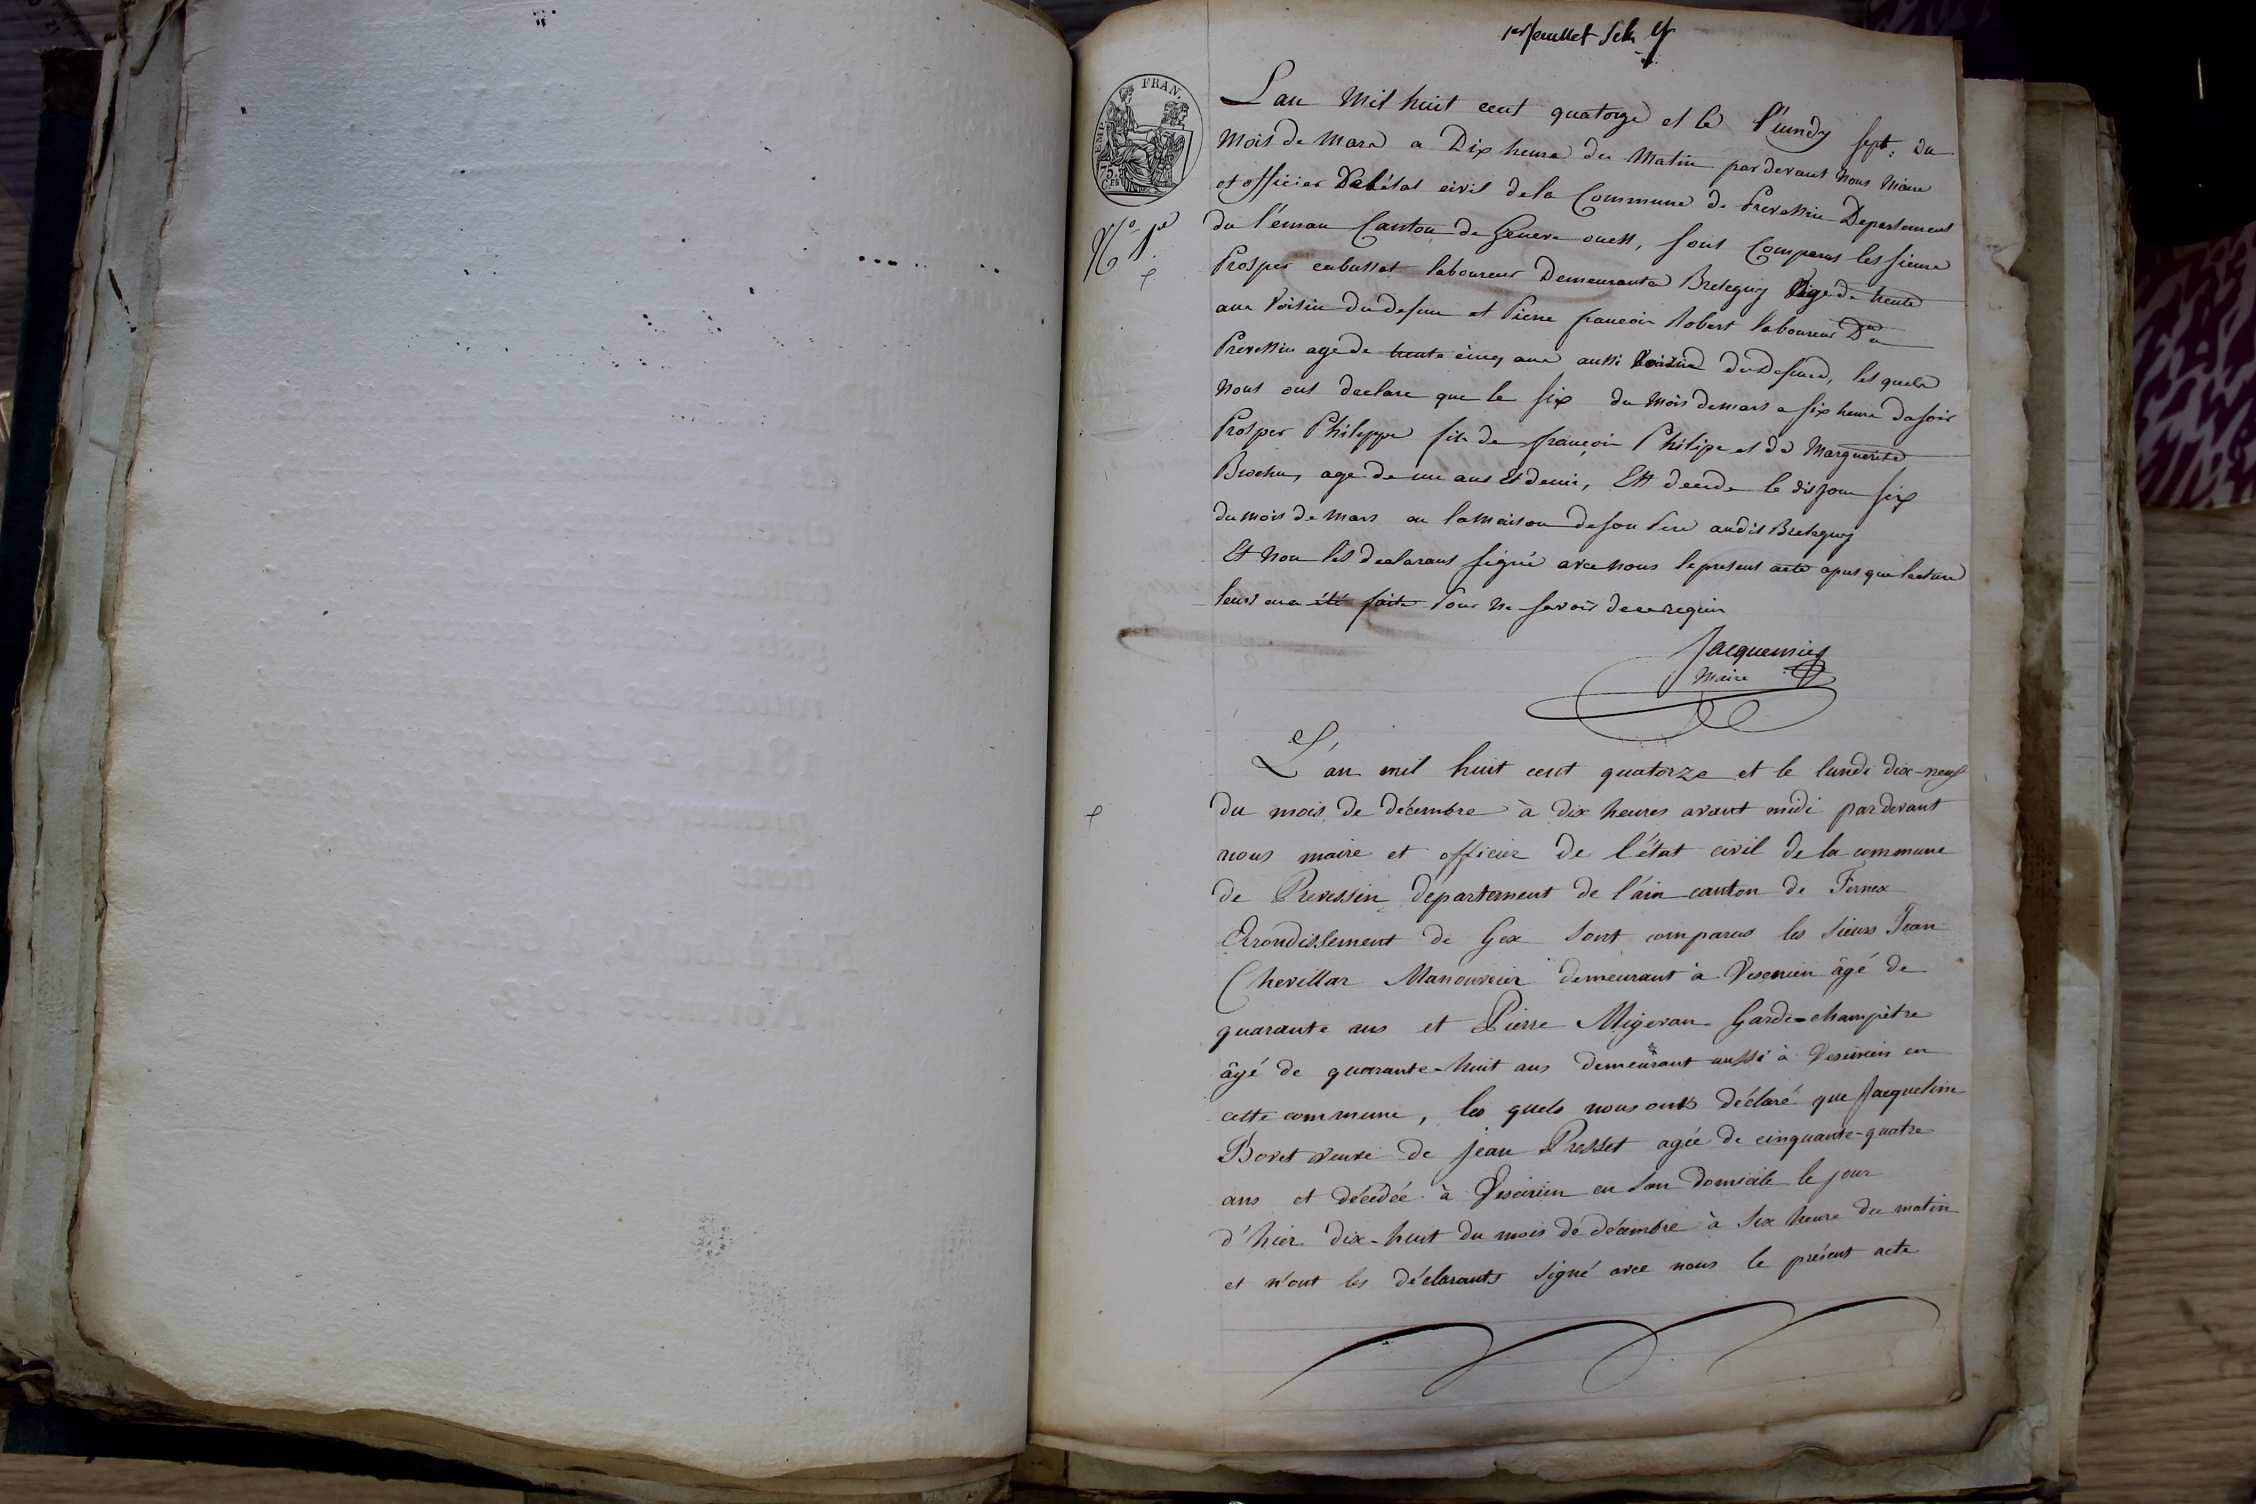 1er feuillet
EMP. FRAN.
75. Ces
No 1er
L'an Mil huit cent quatorze et le l'undy sept: du
Mois de Mars a Dix heure du Matin par devant Nous Maire
et officier De l'état civil de la Commune de Prevessin Departement
du l'éman Canton de Geneve ouest, sont Comparus les sieurs
Prosper laboureur Demeurant a Bretegny age de trente
ans Voisin du defun et Pierre francois Robert laboureur Du
Prevessin age de trente cinq ans aussi Voisin du Defund, les quels
Nous ont declare que le six du Mois de mars a six heure du soir
Prosper Philippe fils de françois Philipe et de Marguerite
Brochu, age de un ans Et demi, Est decede le dit jour six
du mois de Mars en la Maison de son Pere au dit Bretegny
Et Non les declarans signé avec nous le present acte apres que lecture
leurs en a été faite Pour Ne savoir de ce requis
Jacquemier
Maire
L'an mil huit cent quatorze et le lundi dix-neuf
du mois de décembre à dix heures avant midi par devant
nous maire et officier de l'état civil de la commune
de Prevessin département de l'ain canton de Fernex
Arondissement de Gex sont comparus les sieurs Jean
Chevillar Manouvrier demeurant à Vesenien âgé de
quarante ans et Pierre Migevan Garde-champêtre
âgé de quarante-huit ans demeurant aussi à Vesenien en
cette commune, les quels nous onts déclaré que Jacqueline
Bovet veuve de jean Presset agée de cinquante-quatre
ans et décédée à Vesenien en son domicile le jour
d'hier dix-huit du mois de décembre à six heure du matin
et n'ont les déclarants signé avec nous le présent acte